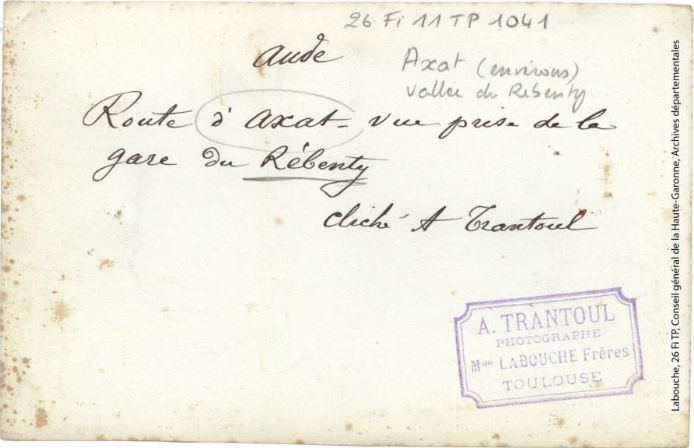 26 Fi 11 TP 1041
Aude
Axat (environs)
vallée du Rébenty
Route d'Axat - vue prise de la
gare du Rébenty
cliché A Trantoul
A. TRANTOUL
PHOTOGRAPHE
Mon LABOUCHE Frères
TOULOUSE
Labouche, 26 FI TP, Conseil général de la Haute-Garonne, Archives départementales